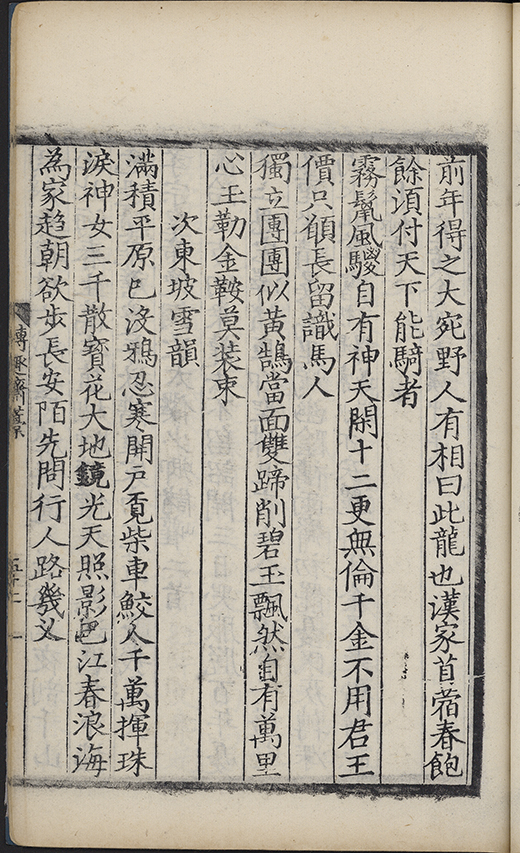 前年得之大宛野人有相曰此龍也漢家苜蓿春飽
餘項付天下能騎者
霧鬣風騣自有神天閑十二更無倫千金不用君王
價只領長留識馬人
獨立團團似黃鵠當面雙蹄削碧玉飄然自有萬里
心玉勒金鞍莫裝束
次東坡雪韻
滿積平原已沒鴉忍寒開戶覓柴車鮫人千萬揮珠
淚神女三千散寶花大地鏡光天照影邑江春浪海
為家趋朝欲步長安陌先問行人路幾义